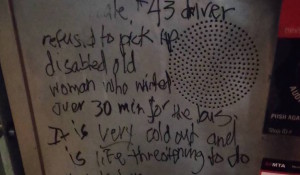 #43 driver
refused to pick up
disabled old
woman who waited
over 30 min for the bus,
It is very cold out and
is life threatening to do
PUSH